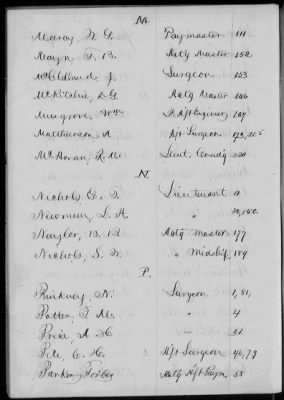 M.
Marcy, W G. Paymaster 111
Mayn, F. B. Actg Master 152
McClelland J. Surgeon 153
McRitchie, D G Actg Master 166
Musgrove, Wm P. Ast Engineer 187
Matthewson, A Ast Surgeon 193, 205
McArran, R. M. Lieut. Comdg 220
N.
Nichols, E. T. Lieutenant 11
Newman, L. H " 30, 180
Naylor, B. B Actg Master 177
Nichols, S. W. " Midship. 189
P.
Pinkney, N. Surgeon 1, 81,
Potter, T. M. " 4
Price, A. H. " 51
Pile, C. H. Ast Surgeon 46, 79
Parker, Forbes Actg Ast Paym 58